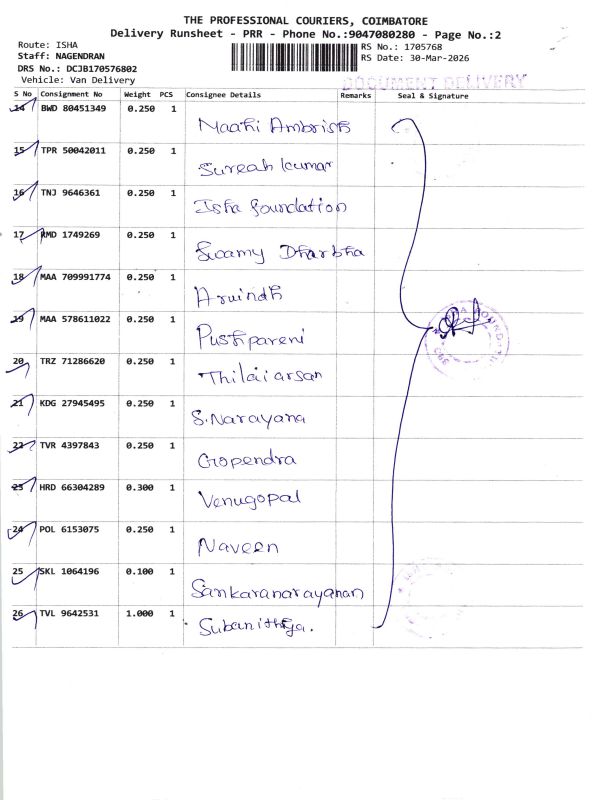 THE PROFESSIONAL COURIERS, COIMBATORE
Delivery Runsheet - PRR - Phone No.:9047080280 - Page No.:2
Route: ISHA
Staff: NAGENDRAN
DRS No.: DCJB170576802
Vehicle: Van Delivery
RS No.: 1705768
RS Date: 30-Mar-2026
DOCUMENT DELIVERY
S No Consignment No Weight PCS Consignee Details Remarks Seal & Signature
14 BWD 80451349 0.250 1 Maahi Ambrish
15 TPR 50042011 0.250 1 Suresh kumar
16 TNJ 9646361 0.250 1 Isha foundation
17 RMD 1749269 0.250 1 Swamy Dharbha
18 MAA 709991774 0.250 1 Arvindh
19 MAA 578611022 0.250 1 Pushpareni
20 TRZ 71286620 0.250 1 Thilaiarsan
21 KDG 27945495 0.250 1 S.Narayana
22 TVR 4397843 0.250 1 Gopendra
23 HRD 66304289 0.300 1 Venugopal
24 POL 6153075 0.250 1 Naveen
25 SKL 1064196 0.100 1 Sankaranarayanan
26 TVL 9642531 1.000 1 Subanithya.